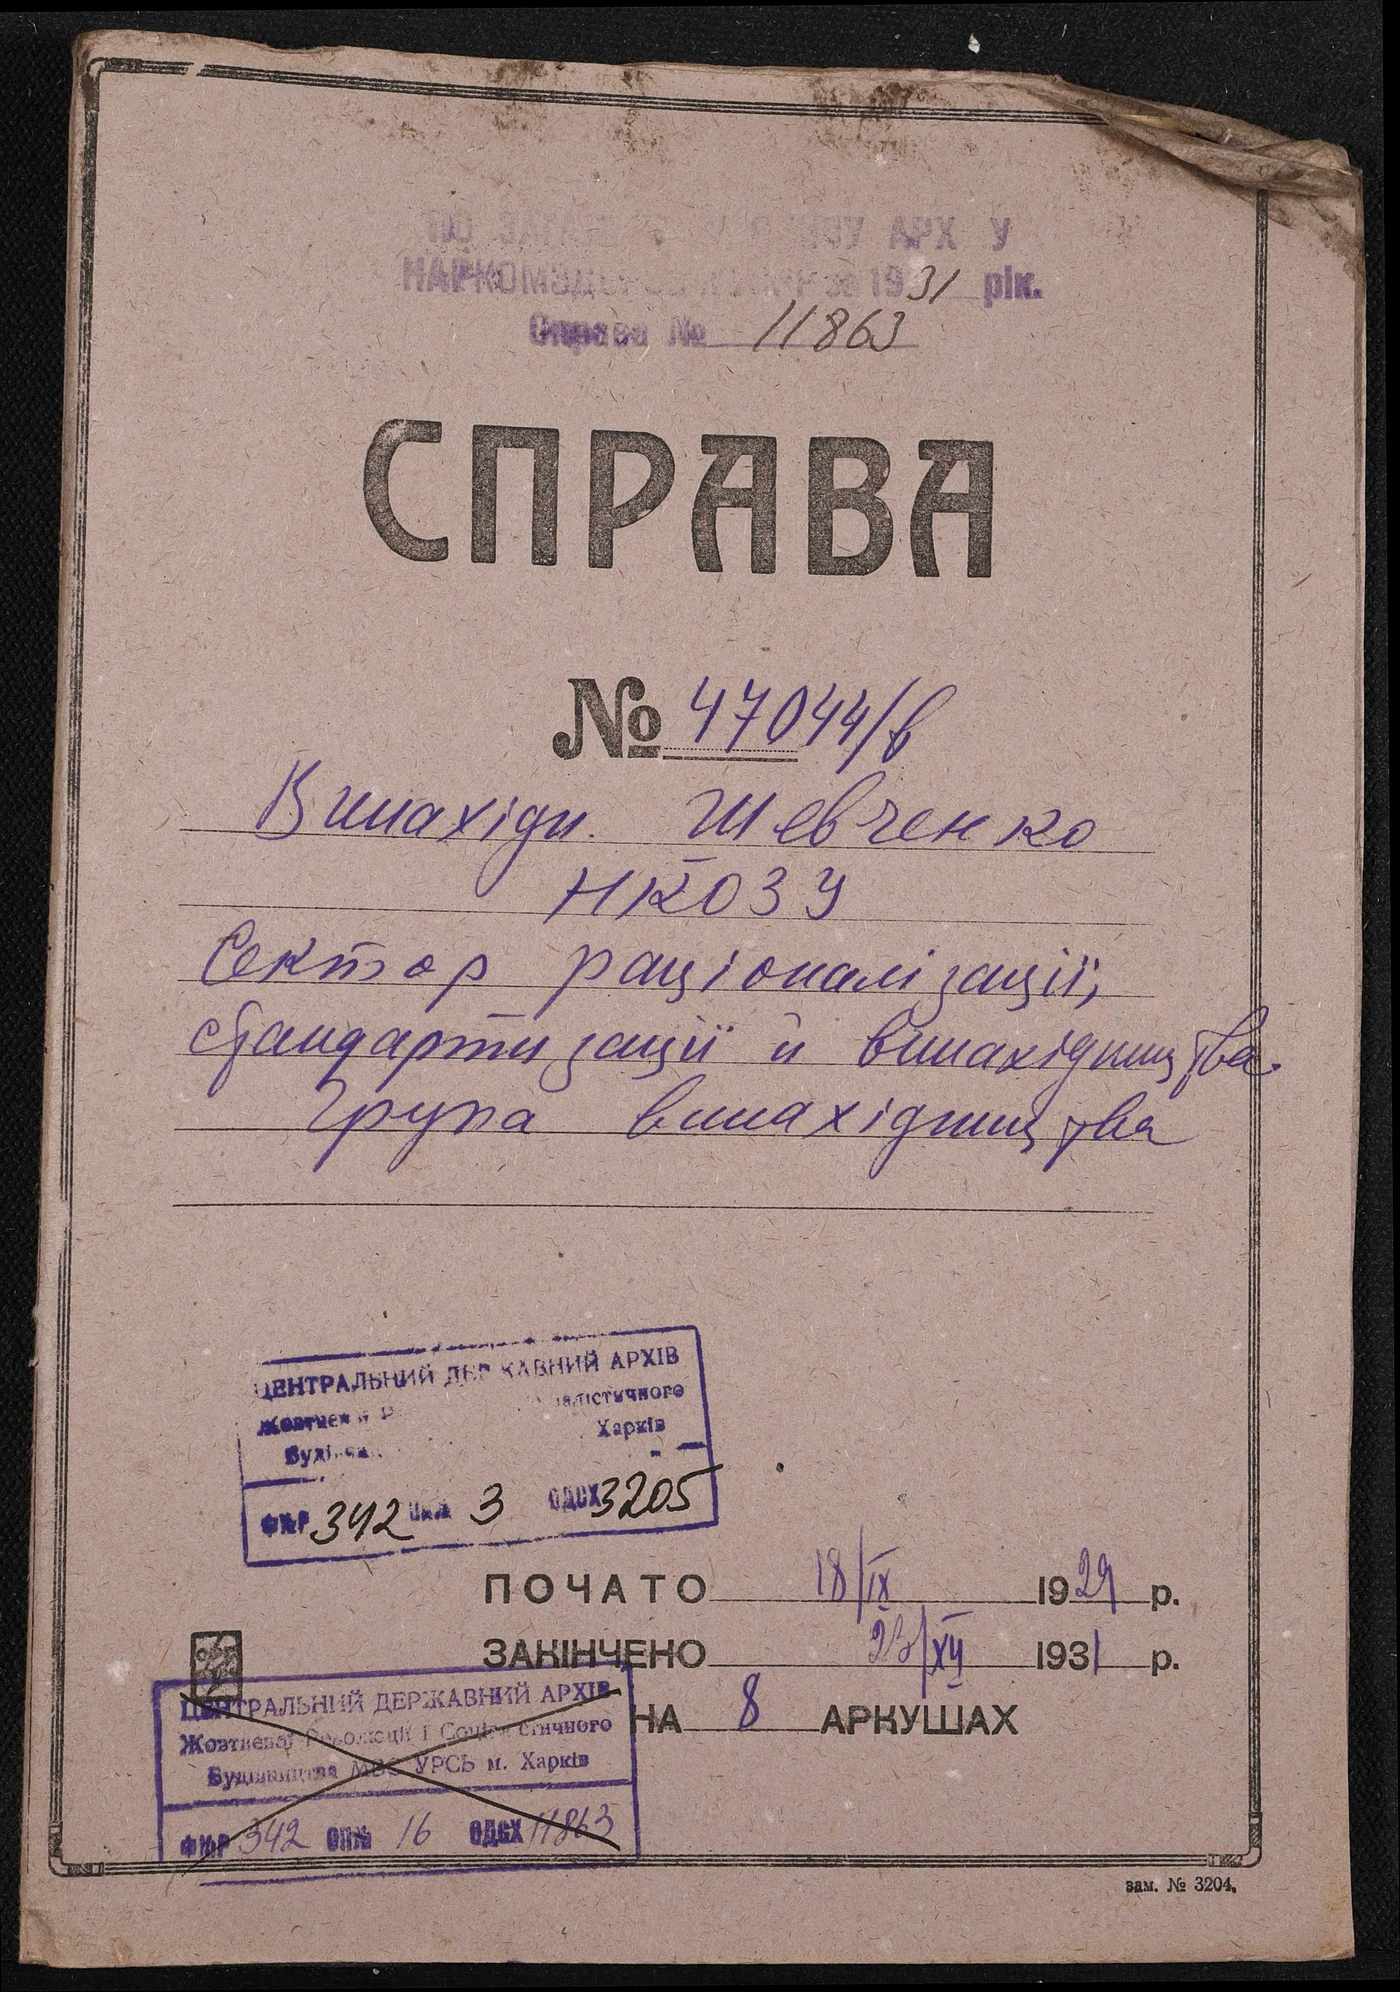 АРХ У
1931 рік.
Справа № 11863
СПРАВА
№ 47044/в
Винахідн. Шевченко
НКОЗУ
Сектор раціоналізації,
стандартизації й винахідництва.
Група винахідництва
ЦЕНТРАЛЬНИЙ ДЕРЖАВНИЙ АРХІВ
Харків
Ф№Р 342 ОП№ 3 ОДЗХ 3205
ПОЧАТО 18/IX 1929 р.
ЗАКІНЧЕНО 23/XII 1931 р.
НА 8 АРКУШАХ
ЦЕНТРАЛЬНИЙ ДЕРЖАВНИЙ АРХІВ
Жовтневої Революції і Соціалістичного
Будівництва МВС УРСЬ м. Харків
Ф№Р 342 ОП№ 16 ОДЗХ 11863
зам. № 3204.